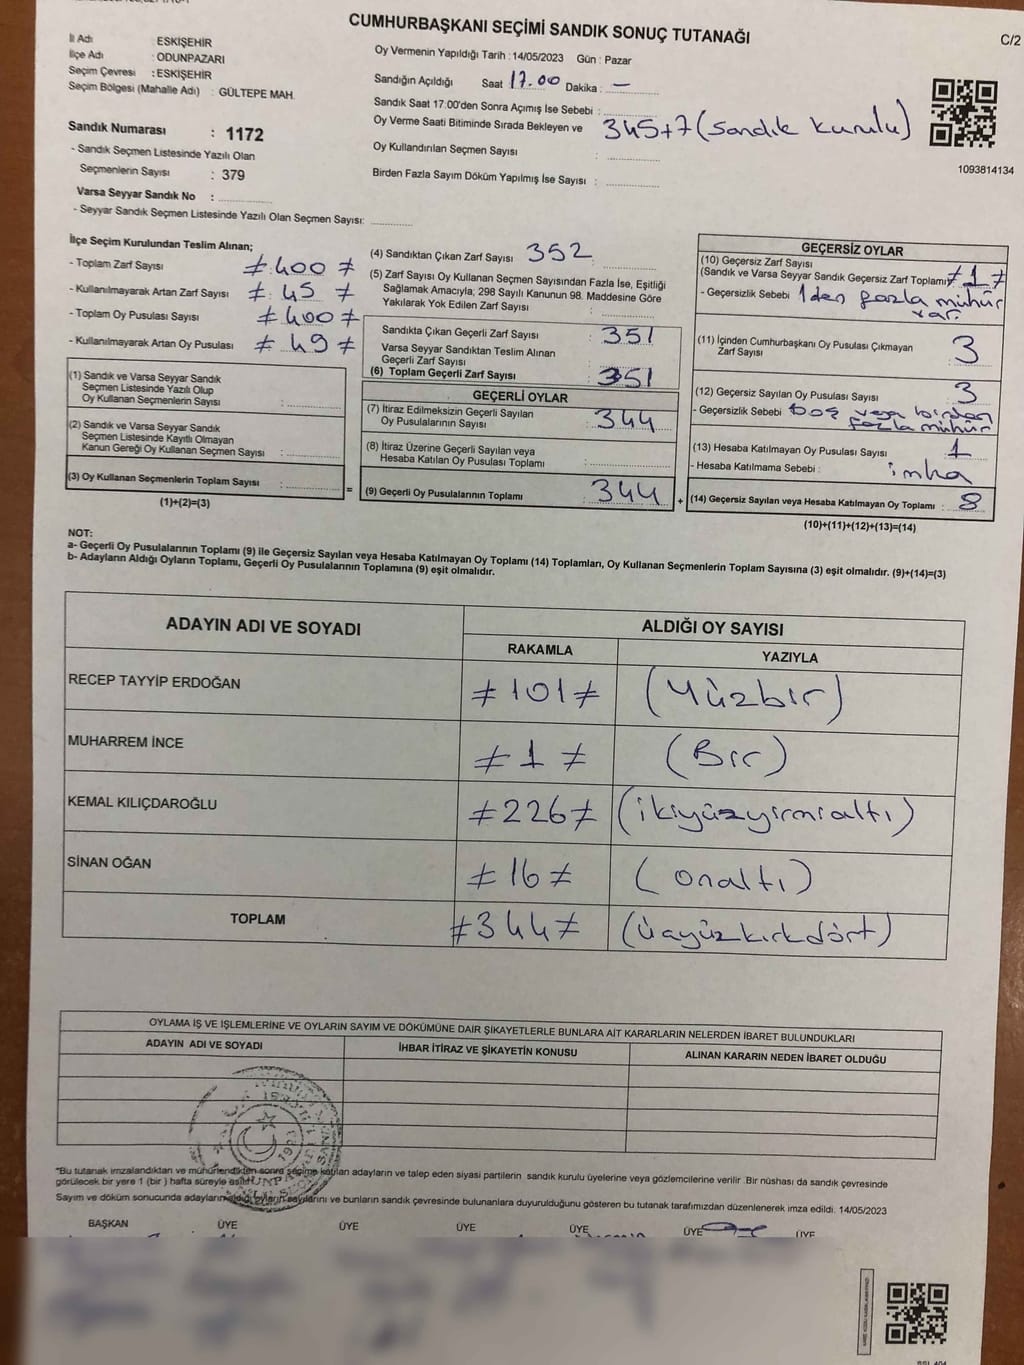 CUMHURBAŞKANI SEÇİMİ SANDIK SONUÇ TUTANAĞI
C/2
İl Adı : ESKİŞEHİR
İlçe Adı : ODUNPAZARI
Seçim Çevresi : ESKİŞEHİR
Seçim Bölgesi (Mahalle Adı) : GÜLTEPE MAH.
Sandık Numarası : 1172
- Sandık Seçmen Listesinde Yazılı Olan
Seçmenlerin Sayısı : 379
Varsa Seyyar Sandık No :
- Seyyar Sandık Seçmen Listesinde Yazılı Olan Seçmen Sayısı:
Oy Vermenin Yapıldığı Tarih : 14/05/2023 Gün : Pazar
Sandığın Açıldığı Saat 17.00 Dakika : —
Sandık Saat 17:00'den Sonra Açımış İse Sebebi :
Oy Verme Saati Bitiminde Sırada Bekleyen ve 345+7 (sandık kurulu)
Oy Kullandırılan Seçmen Sayısı :
Birden Fazla Sayım Döküm Yapılmış İse Sayısı :
1093814134
İlçe Seçim Kurulundan Teslim Alınan;
- Toplam Zarf Sayısı ≠ 400 ≠
- Kullanılmayarak Artan Zarf Sayısı ≠ 45 ≠
- Toplam Oy Pusulası Sayısı ≠ 400 ≠
- Kullanılmayarak Artan Oy Pusulası ≠ 49 ≠
(1) Sandık ve Varsa Seyyar Sandık
Seçmen Listesinde Yazılı Olup
Oy Kullanan Seçmenlerin Sayısı :
(2) Sandık ve Varsa Seyyar Sandık
Seçmen Listesinde Kayıtlı Olmayan
Kanun Gereği Oy Kullanan Seçmen Sayısı :
(3) Oy Kullanan Seçmenlerin Toplam Sayısı :
(1)+(2)=(3)
=
(4) Sandıktan Çıkan Zarf Sayısı : 352
(5) Zarf Sayısı Oy Kullanan Seçmen Sayısından Fazla İse, Eşitliği
Sağlamak Amacıyla; 298 Sayılı Kanunun 98. Maddesine Göre
Yakılarak Yok Edilen Zarf Sayısı :
Sandıkta Çıkan Geçerli Zarf Sayısı : 351
Varsa Seyyar Sandıktan Teslim Alınan
Geçerli Zarf Sayısı :
(6) Toplam Geçerli Zarf Sayısı : 351
GEÇERLİ OYLAR
(7) İtiraz Edilmeksizin Geçerli Sayılan
Oy Pusulalarının Sayısı : 344
(8) İtiraz Üzerine Geçerli Sayılan veya
Hesaba Katılan Oy Pusulası Toplamı :
(9) Geçerli Oy Pusulalarının Toplamı : 344
+
GEÇERSİZ OYLAR
(10) Geçersiz Zarf Sayısı
(Sandık ve Varsa Seyyar Sandık Geçersiz Zarf Toplamı) ≠ 1 ≠
- Geçersizlik Sebebi 1den fazla mühür
var.
(11) İçinden Cumhurbaşkanı Oy Pusulası Çıkmayan
Zarf Sayısı : 3
(12) Geçersiz Sayılan Oy Pusulası Sayısı : 3
- Geçersizlik Sebebi boş veya birden
fazla mühür
(13) Hesaba Katılmayan Oy Pusulası Sayısı : 1
- Hesaba Katılmama Sebebi : imha
(14) Geçersiz Sayılan veya Hesaba Katılmayan Oy Toplamı : 8
(10)+(11)+(12)+(13)=(14)
NOT:
a- Geçerli Oy Pusulalarının Toplamı (9) ile Geçersiz Sayılan veya Hesaba Katılmayan Oy Toplamı (14) Toplamları, Oy Kullanan Seçmenlerin Toplam Sayısına (3) eşit olmalıdır. (9)+(14)=(3)
b- Adayların Aldığı Oyların Toplamı, Geçerli Oy Pusulalarının Toplamına (9) eşit olmalıdır.
ADAYIN ADI VE SOYADI ALDIĞI OY SAYISI
RAKAMLA YAZIYLA
RECEP TAYYİP ERDOĞAN ≠ 101 ≠ (Yüzbir)
MUHARREM İNCE ≠ 1 ≠ (Bir)
KEMAL KILIÇDAROĞLU ≠ 226 ≠ (ikiyüzyirmialtı)
SİNAN OĞAN ≠ 16 ≠ (onaltı)
TOPLAM ≠ 344 ≠ (üçyüzkırkdört)
OYLAMA İŞ VE İŞLEMLERİNE VE OYLARIN SAYIM VE DÖKÜMÜNE DAİR ŞİKAYETLERLE BUNLARA AİT KARARLARIN NELERDEN İBARET BULUNDUKLARI
ADAYIN ADI VE SOYADI İHBAR İTİRAZ VE ŞİKAYETİN KONUSU ALINAN KARARIN NEDEN İBARET OLDUĞU
*Bu tutanak imzalandıktan ve mühürlendikten sonra seçime katılan adayların ve talep eden siyasi partilerin sandık kurulu üyelerine veya gözlemcilerine verilir. Bir nüshası da sandık çevresinde
görülecek bir yere 1 (bir) hafta süreyle asılır.
Sayım ve döküm sonucunda adayların aldığı oyların sayılarını ve bunların sandık çevresinde bulunanlara duyurulduğunu gösteren bu tutanak tarafımızdan düzenlenerek imza edildi. 14/05/2023
BAŞKAN ÜYE ÜYE ÜYE ÜYE ÜYE ÜYE